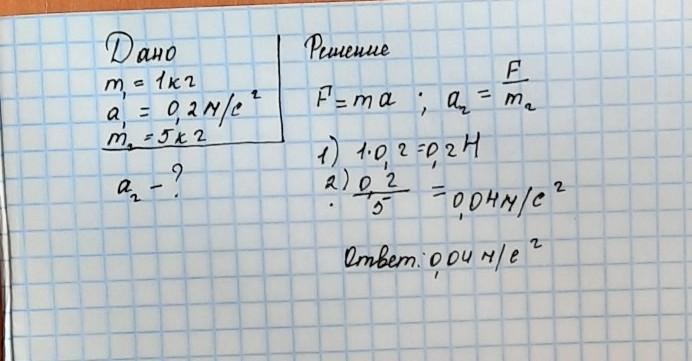 Дано
m₁ = 1кг
a₁ = 0,2м/с²
m₂ = 5кг
a₂ - ?
Решение
F = ma ; a₂ = F/m₂
1) 1·0,2 = 0,2Н
2) 0,2/5 = 0,04м/с²
Ответ: 0,04м/с²